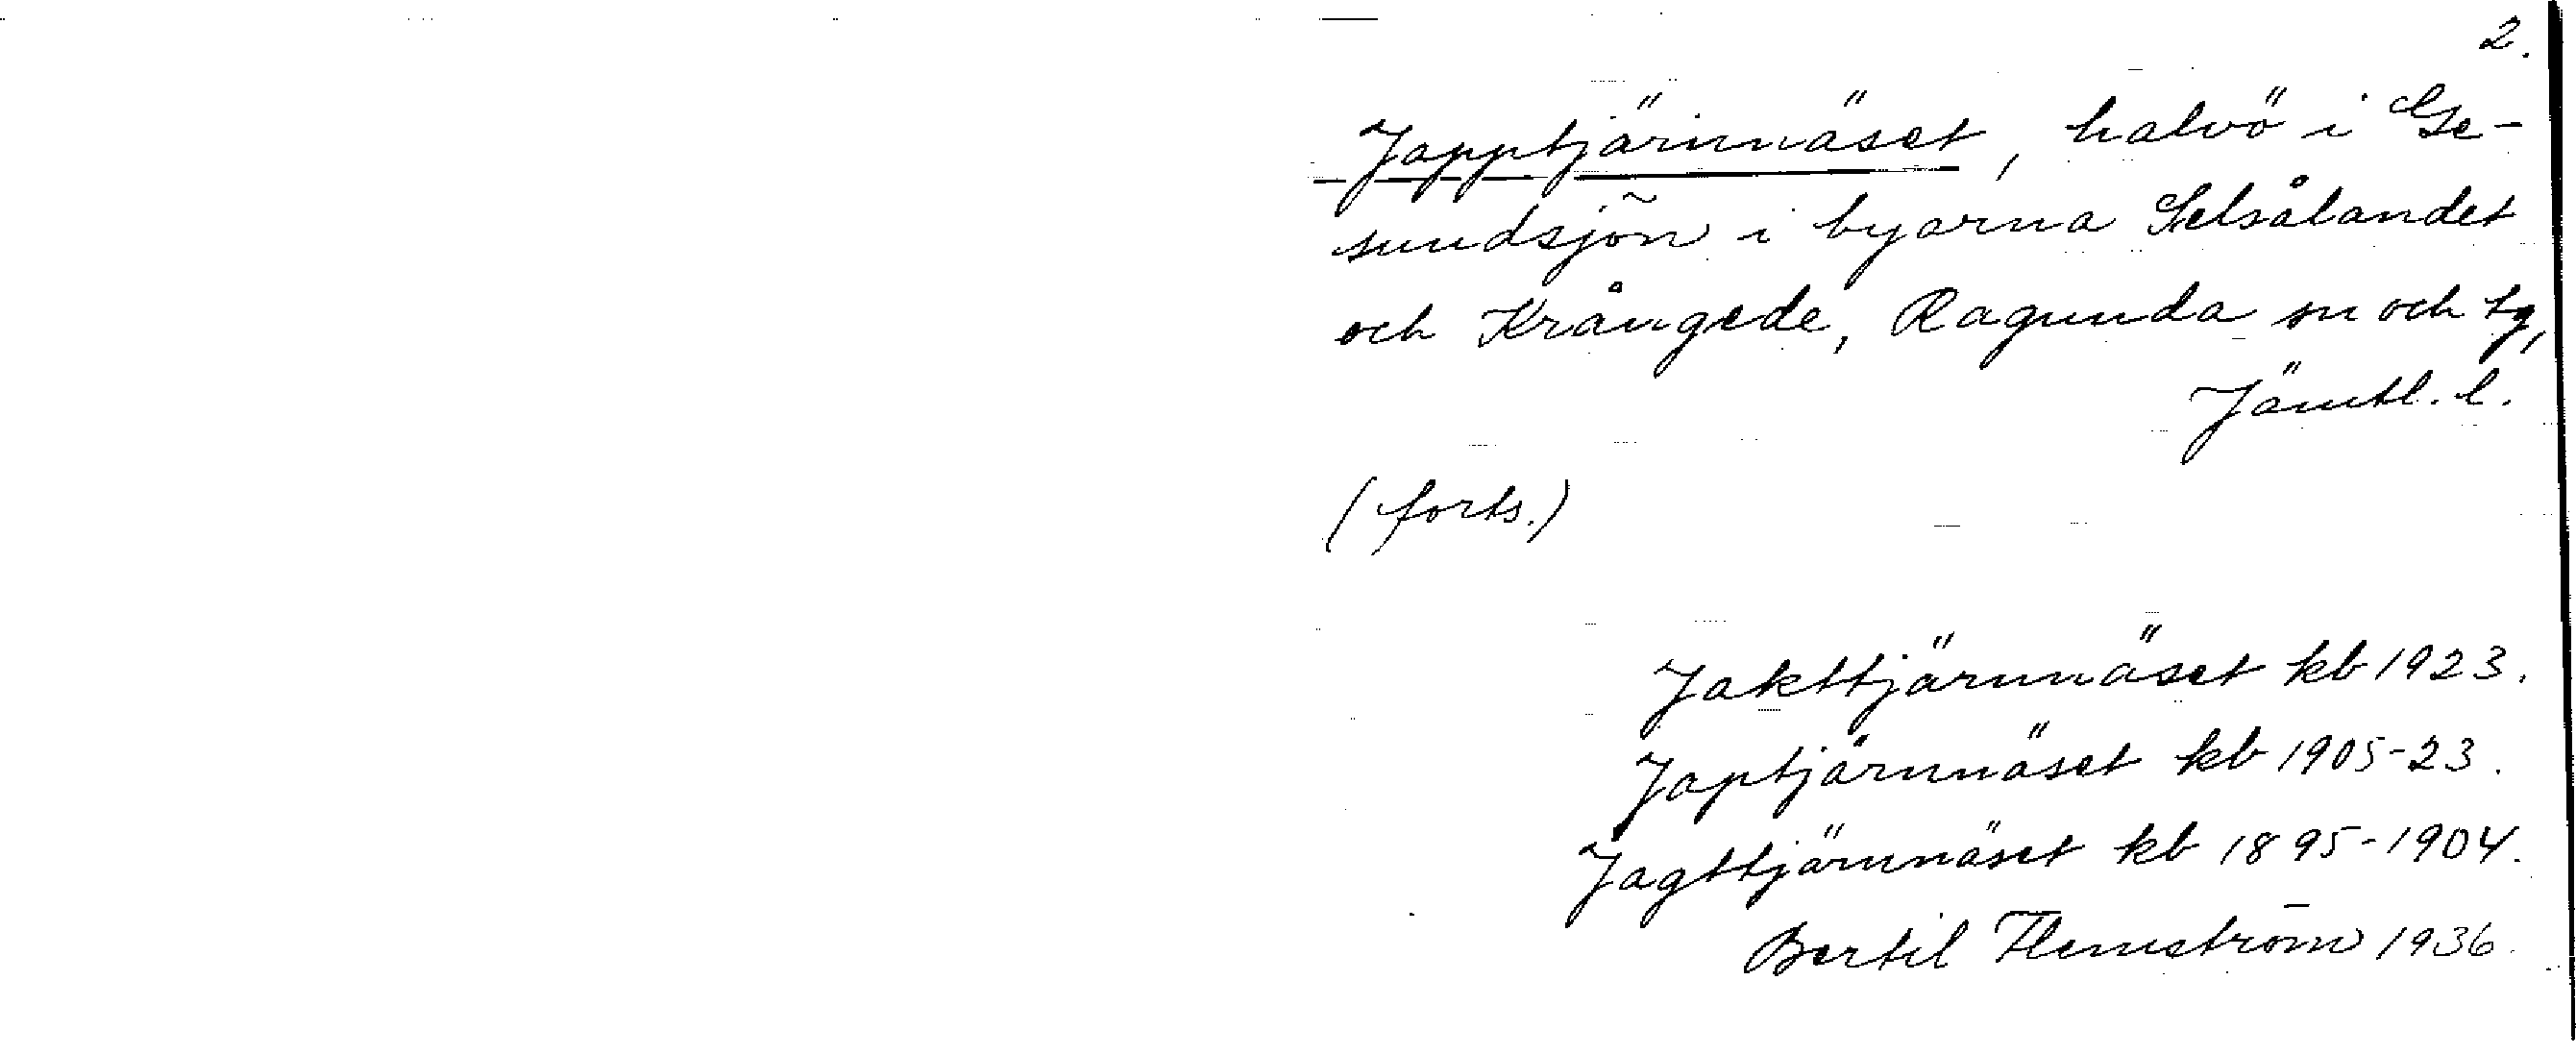 2.
Japptjärnnäset, halvö i Ge-
sundsjön i byarna Selsålandet
och Krångede, Ragunda sn och tg,
Jämtl. l.
(forts.)
Jakttjärnnäset kb 1923.
Japtjärnnäset kb 1905-23.
Jagttjärnnäset kb 1895-1904.
Bertil Flemström 1936.